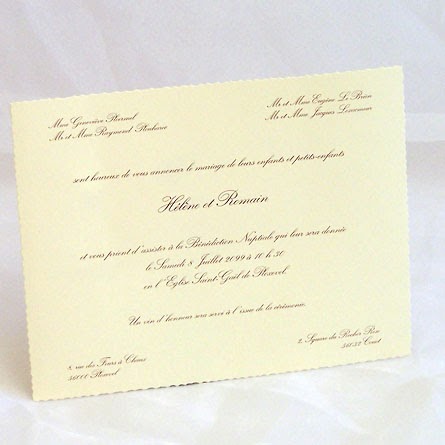 Mme Geneviève Plormel
Mr et Mme Raymond Plouhinec
Mr et Mme Eugène Le Brian
Mr et Mme Jacques
sont heureux de vous annoncer le mariage de leurs enfants et petits-enfants
Hélène et Romain
et vous prient d'assister à la Bénédiction Nuptiale qui leur sera donnée
le Samedi 8 Juillet 2099 à 10 h 30
en l'Eglise Saint-Goël de Plozevel.
Un vin d'honneur sera servi à l'issue de la cérémonie.
8, rue des Fours à Chaux
56000 Plozevel
2, Square du Rocher Ron
56032 Coret